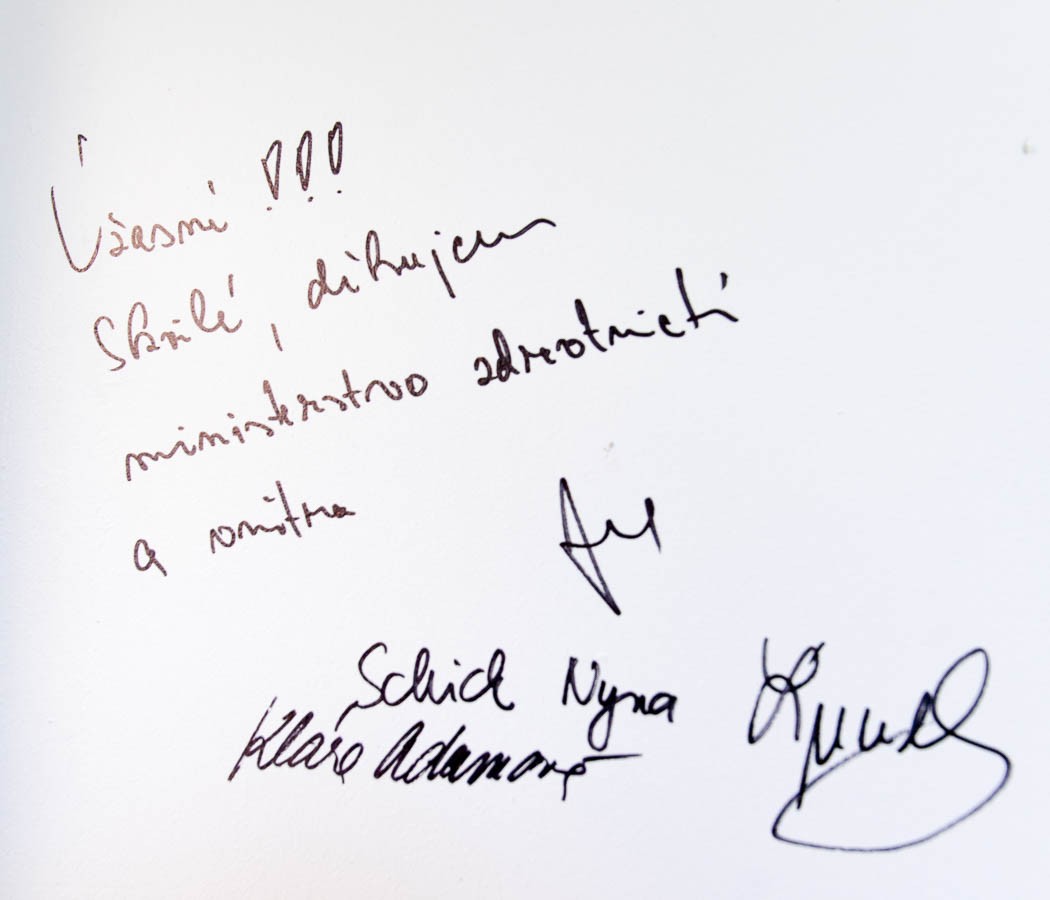 Úžasné !!!
Skvělé, děkujem
ministerstvo zdravotnictví
a vnitra
Schick Nyna
Klára Adamová